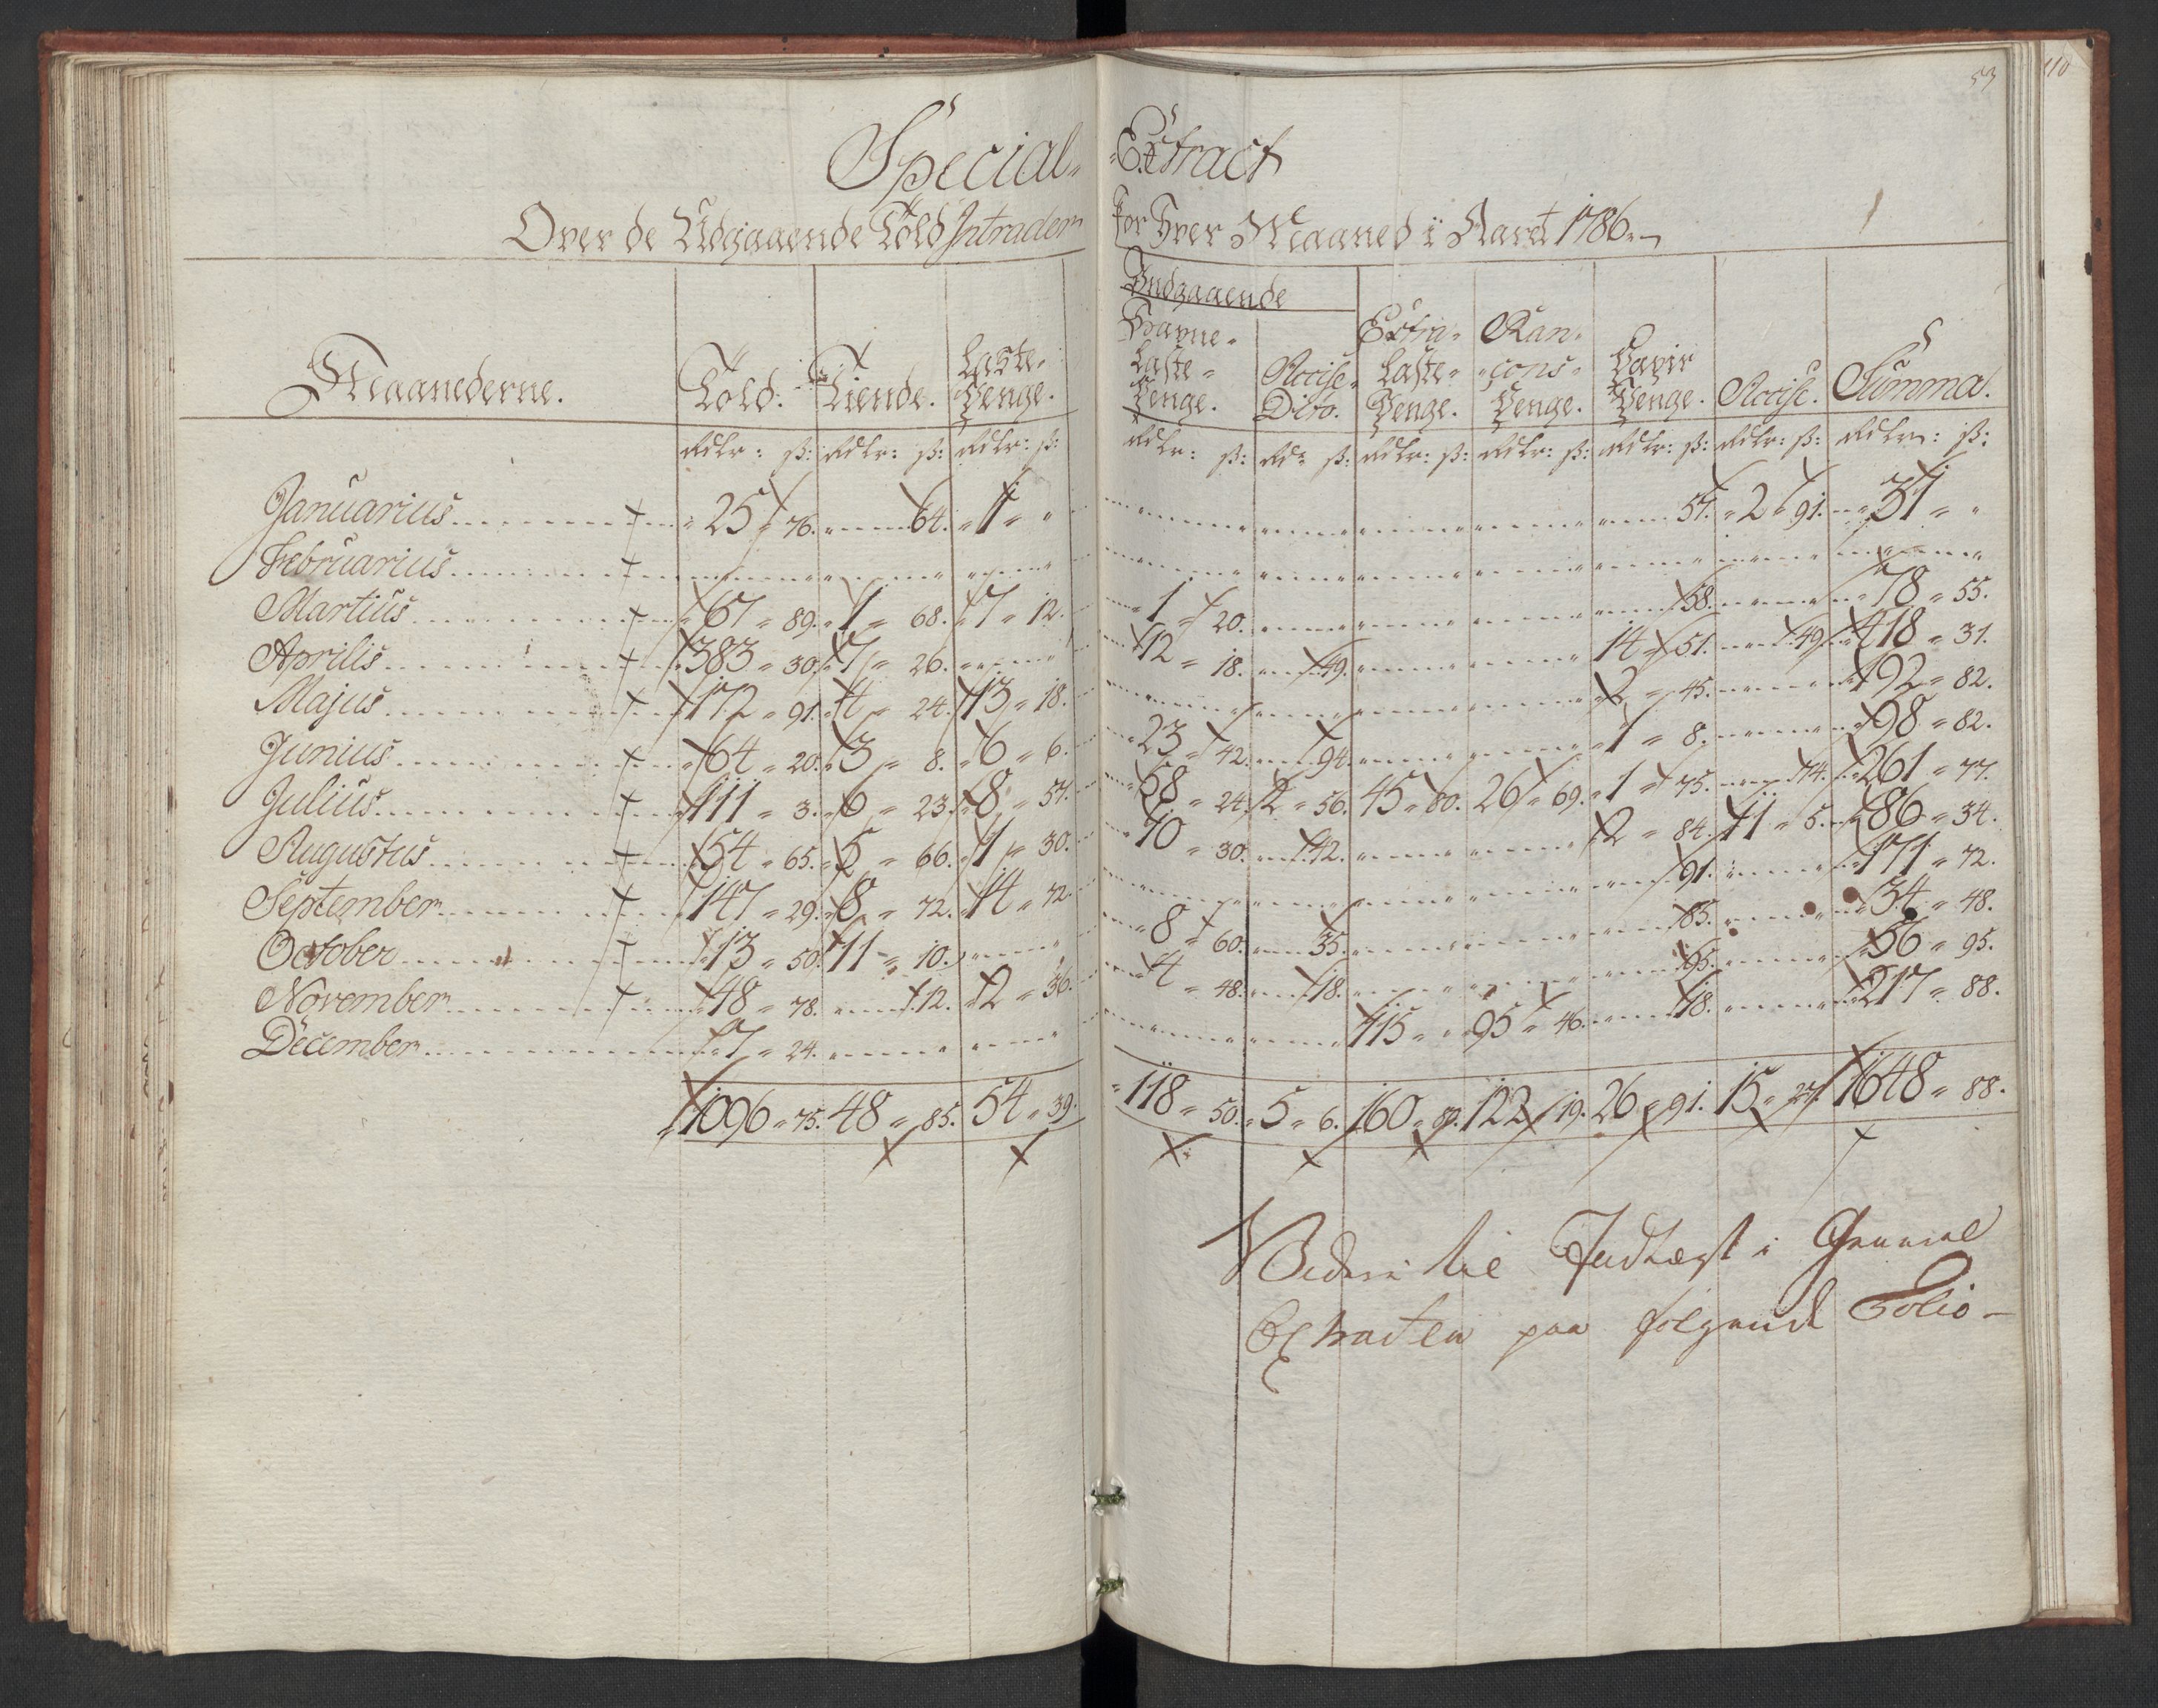 53
110
Special- Extract
Over de Udgaaende Told Intrader for Hver Maaned i Aaret 1786
Indgaaende
Maanederne. Told. Tiende. Laste-Penge. Havne-Laste-Penge. Accise Dito. Extra-Laste-Penge. Ran-cons-Penge. Papir Penge. Accise. Summa.
Rdlr: ß: Rdlr: ß: Rdlr: ß: Rdlr: ß: Rdr ß: Rdlr: ß: Rdlr: ß: Rdlr: ß: Rdlr: ß: Rdlr: ß:
Januarius 25 " 76. 64. 1 " " 57. 2 " 91. 31 " "
Februarius
Martius 67 " 89. 1 " 68. 7 " 12. 1 " 20. 58. 78 " 55.
Aprilis 383 " 30. 7 " 26. 12 " 18. 49. 14 " 51. 49. 418 " 31.
Majus 172 " 91. 4 " 24. 13 " 18. 2 " 45. 192 " 82.
Junius 64 " 20. 3 " 8. 6 " 6. 23 " 42. 94. 1 " 8. 98 " 82.
Julius 111 " 3. 6 " 23. 8 " 57. 58 " 24. 2 " 56. 45 " 80. 26 " 69. 1 " 75. 74. 261 " 77.
Augustus 54 " 65. 5 " 66. 1 " 30. 10 " 30. 42. 2 " 84. 11 " 5. 86 " 34.
September 147 " 29. 8 " 72. 14 " 72. 91. 171 " 72.
October 13 " 50. 11 " 10. 8 " 60. 35. 85. 34 " 48.
November 48 " 78. 12. 2 " 36. 4 " 48. 18. 95. 56 " 95.
December 7 " 24. 115 " " 95 " 46. 18. 217 " 88.
1096 " 75. 48 " 85. 54 " 39. 118 " 50. 5 " 6. 160 " 80. 122 " 19. 26 " 91. 15 " 27. 1648 " 88.
Videre til Indtægt i General
Extracten paa følgende Folio